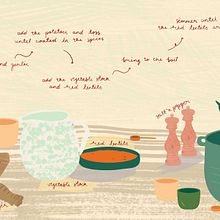 add the potatoes and toss
until coated in the spices
simmer until
the red lentils are
and garlic
add the vegetable stock
and red lentils
bring to the boil
salt & pepper
red lentils
vegetable stock